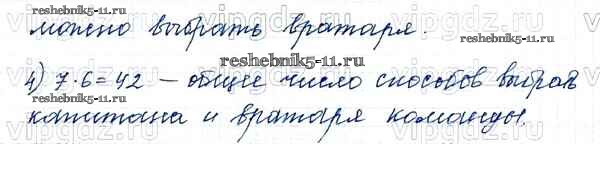 можно выбрать вратаря.
reshebnik5-11.ru
reshebnik5-11.ru
4) 7·6=42 – общее число способов выбрать
reshebnik5-11.ru
reshebnik5-11.ru
капитана и вратаря команды.